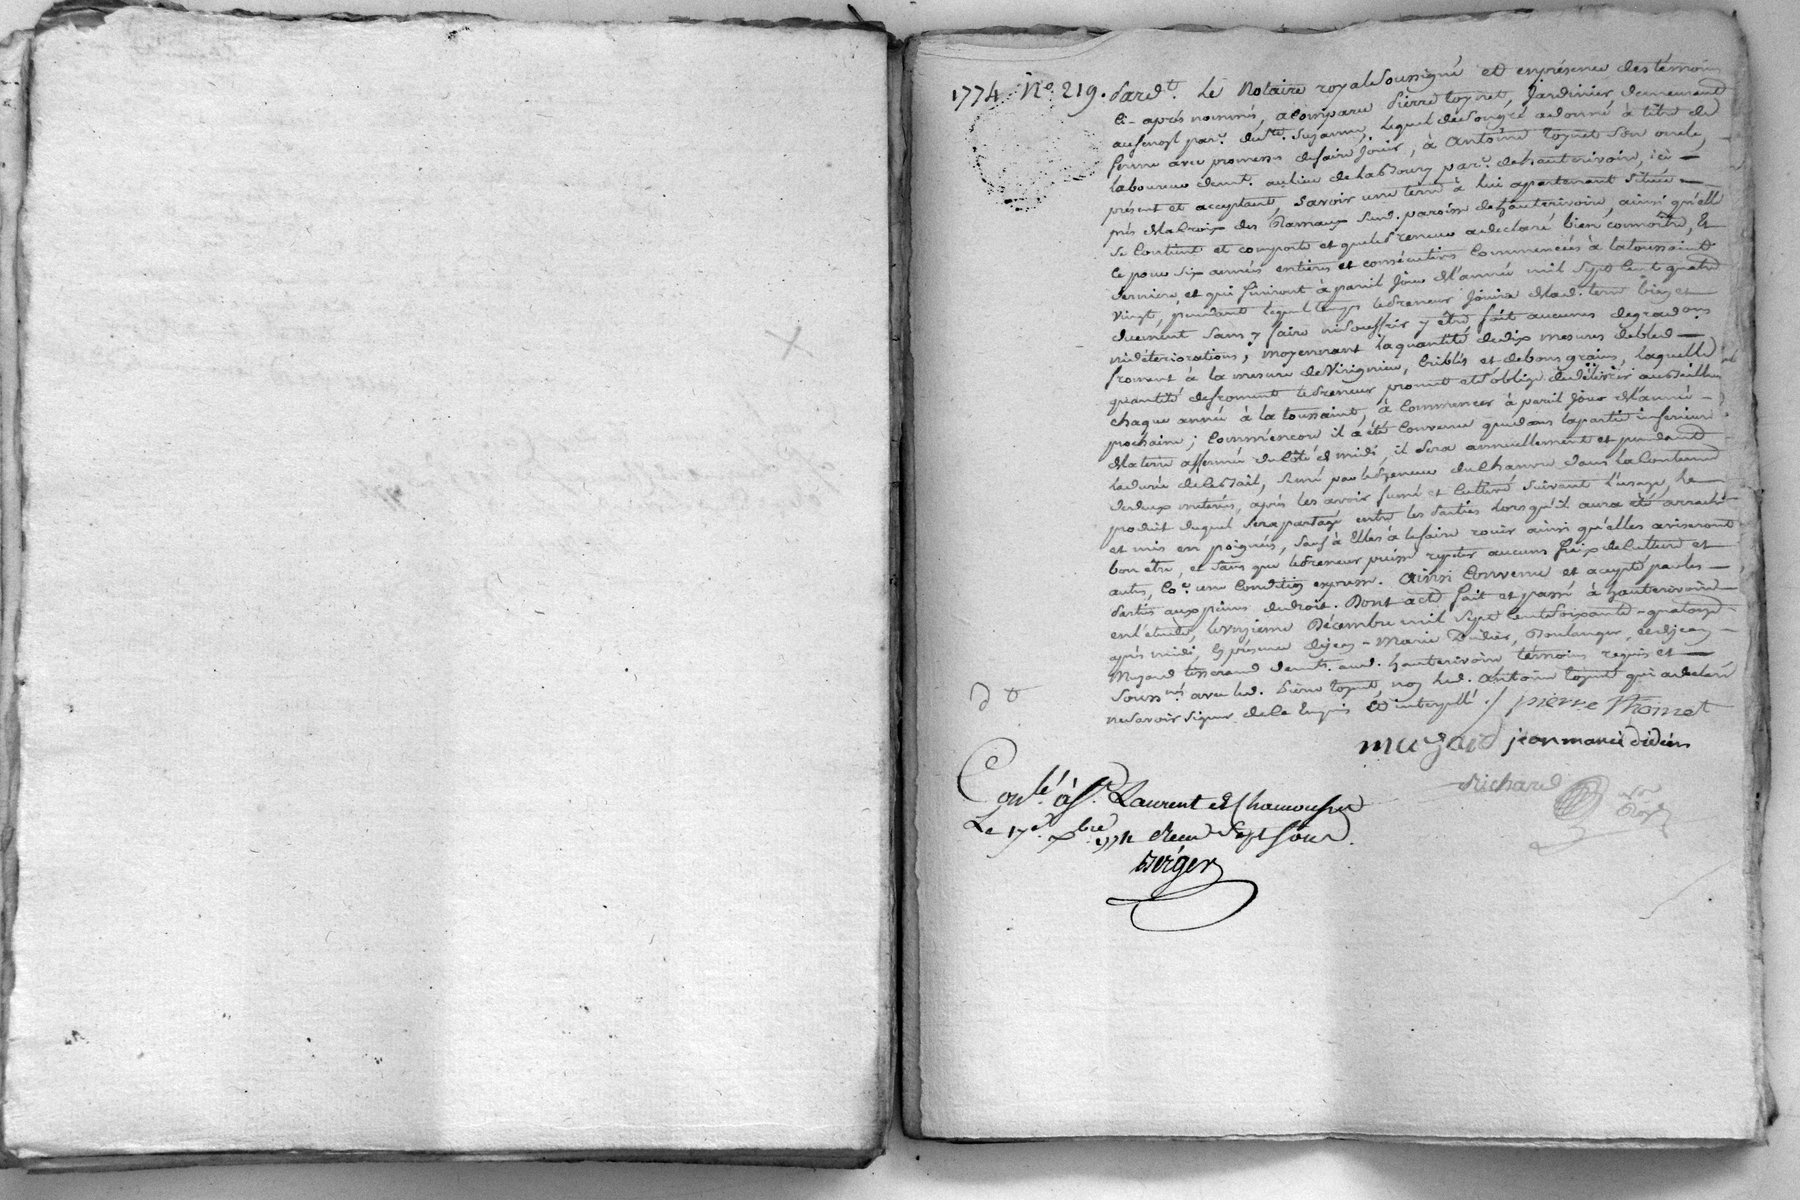 1774 No. 219. Pardt. Le Notaire royal Soussigné et en présence des témoins
ci-après nommés, a comparu Pierre toynet, Jardinier demeurant
parr. de Ste. Suzanne, lequel de son gré a donné à titre de
ferme avec promesse de faire Jouir, à Antoine toynet son oncle,
laboureur demt. au lieu de parr. de hauterivoire, ici
présent et acceptant, Savoir une terre à lui apartenant Située
près de la Croix des Rameaux Sud. paroisse de hauterivoire, ainsi qu'elle
Se Contient et comporte et que led. Preneur a declaré bien connoitre, Et
Ce pour Six années entieres et consécutives Commencées à la toussaint
derniere, et qui finiront à pareil Jour de l'année mil Sept Cent quatre
vingt, pendant lequel temps led. Preneur Jouira de lad. terre bien et
duement Sans y faire ni Souffrir y être fait aucunes degradaons
ni déteriorations; moyennant la quantité de dix mesures de bled
froment à la mesure de Virignieu, Criblés et de bons grains, laquelle
quantité de froment led. Preneur promet et S'oblige de délivrer au d. Bailleur
chaque année à la toussaint, à Commencer à pareil Jour de l'année
prochaine; Comm'encore il a été Convenu que dans la partie inférieure
de la terre affermée du Côté de midi, il Sera annuellement et pendant
la durée de Ce Bail, Semé par led. Preneur du Chanvre dans la Contenue
de deux meterées, après les avoir fumé et Cultivé Suivant l'usage, le
produit duquel Sera partagé entre les Parties lorsqu'il aura été arraché
et mis en poignées, Sauf à Elles à le faire rouir ainsi qu'elles aviseront
bon être, et Sans que led. Preneur puisse repeter aucuns fraix de Culture et
autres, Co.e une Condition expresse. Ainsi Convenu et acepté par les
Parties aux peines de droit. Dont acte fait et passé à hauterivoire
en l'étude, le onzieme Décembre mil Sept Cent Soixante-quatorze
après midi, En présence de Jean-Marie Didier, Boulanger, et de Jean
Muzard tisserand demts. aud. hauterivoire témoins requis et
Soussnés avec led. Pierre toynet, non led. Antoine toynet qui a declaré
ne Savoir Signer de Ce Enquis Et interpellé. / pierre Thoinet
muzard jean marie didier
Richard nore Royal
Conlé à St. Laurent de Chamousset
Le 17e xbre 1774 Reçu Sept Sous
Berger